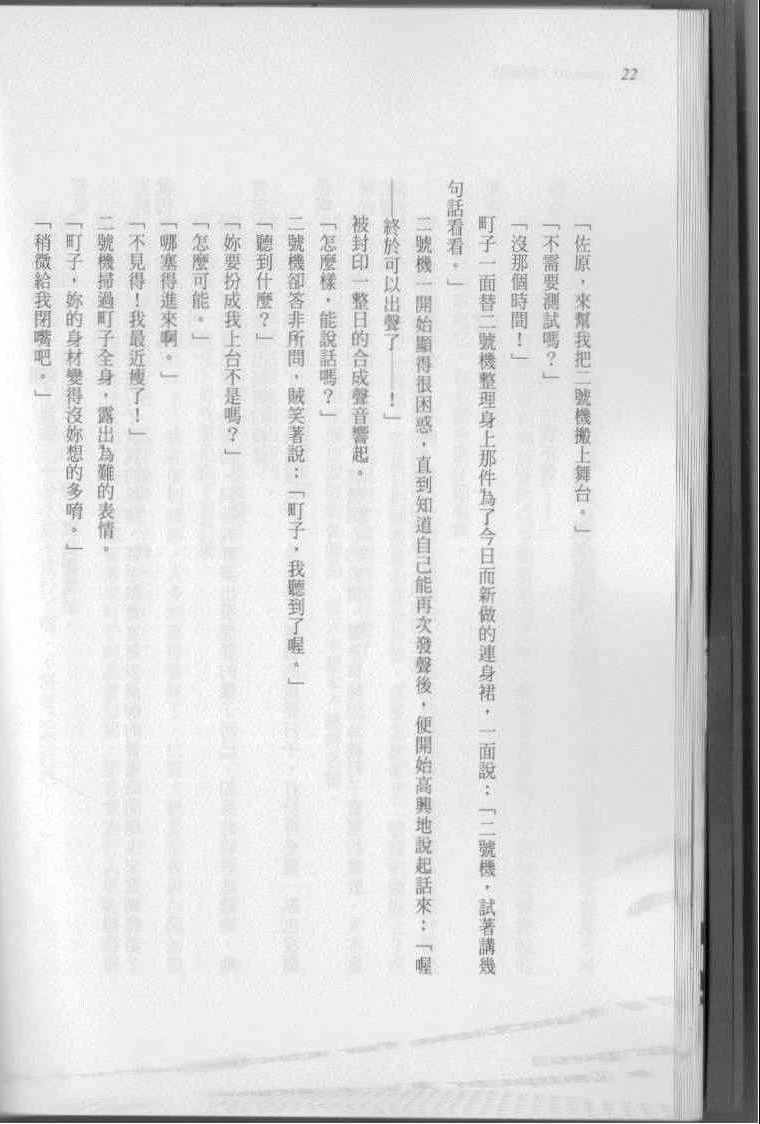 22
「佐原，來幫我把二號機搬上舞台。」
「不需要測試嗎？」
「沒那個時間！」
町子一面替二號機整理身上那件為了今日而新做的連身裙，一面說：「二號機，試著講幾
句話看看。」
二號機一開始顯得很困惑，直到知道自己能再次發聲後，便開始高興地說起話來：「喔
——終於可以出聲了——！」
被封印一整日的合成聲音響起。
「怎麼樣，能說話嗎？」
二號機卻答非所問，賊笑著說：「町子，我聽到了喔。」
「聽到什麼？」
「妳要扮成我上台不是嗎？」
「怎麼可能。」
「哪塞得進來啊。」
「不見得！我最近瘦了！」
二號機掃過町子全身，露出為難的表情。
「町子，妳的身材變得沒妳想的多唷。」
「稍微給我閉嘴吧。」